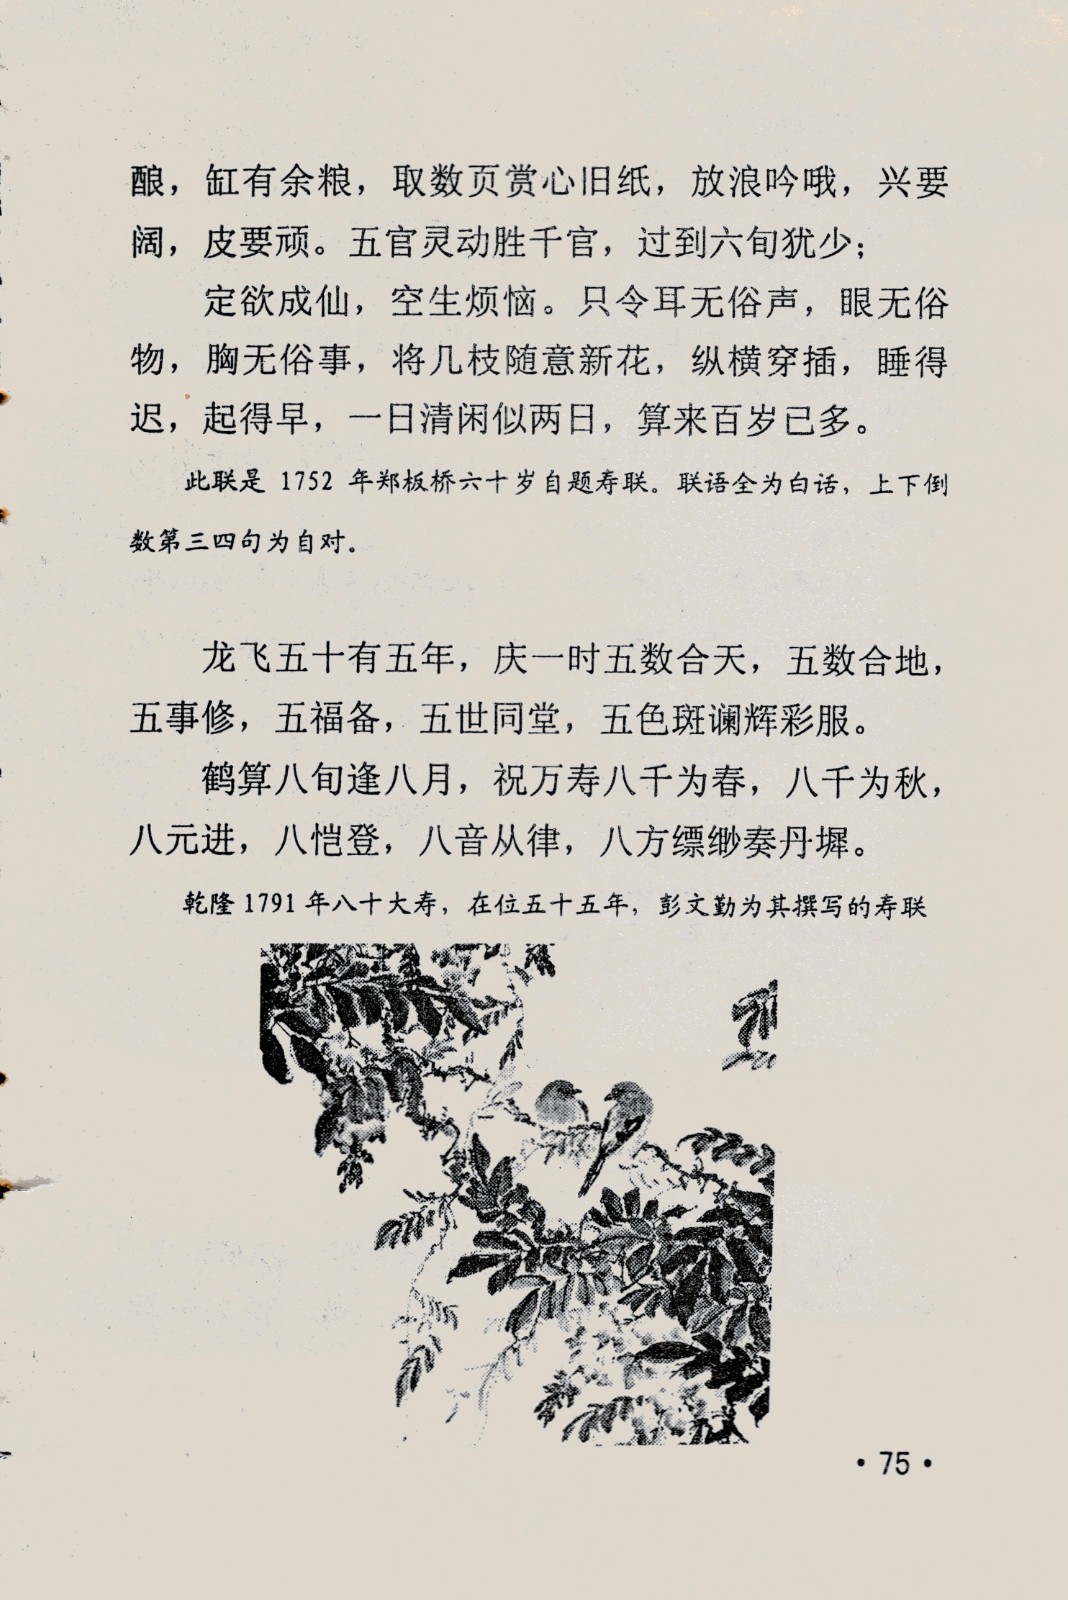 酿，缸有余粮，取数页赏心旧纸，放浪吟哦，兴要
阔，皮要顽。五官灵动胜千官，过到六旬犹少；
定欲成仙，空生烦恼。只令耳无俗声，眼无俗
物，胸无俗事，将几枝随意新花，纵横穿插，睡得
迟，起得早，一日清闲似两日，算来百岁已多。
此联是 1752 年郑板桥六十岁自题寿联。联语全为白话，上下倒
数第三四句为自对。
龙飞五十有五年，庆一时五数合天，五数合地，
五事修，五福备，五世同堂，五色斑谰辉彩服。
鹤算八旬逢八月，祝万寿八千为春，八千为秋，
八元进，八恺登，八音从律，八方缥缈奏丹墀。
乾隆 1791 年八十大寿，在位五十五年，彭文勤为其撰写的寿联
·75·